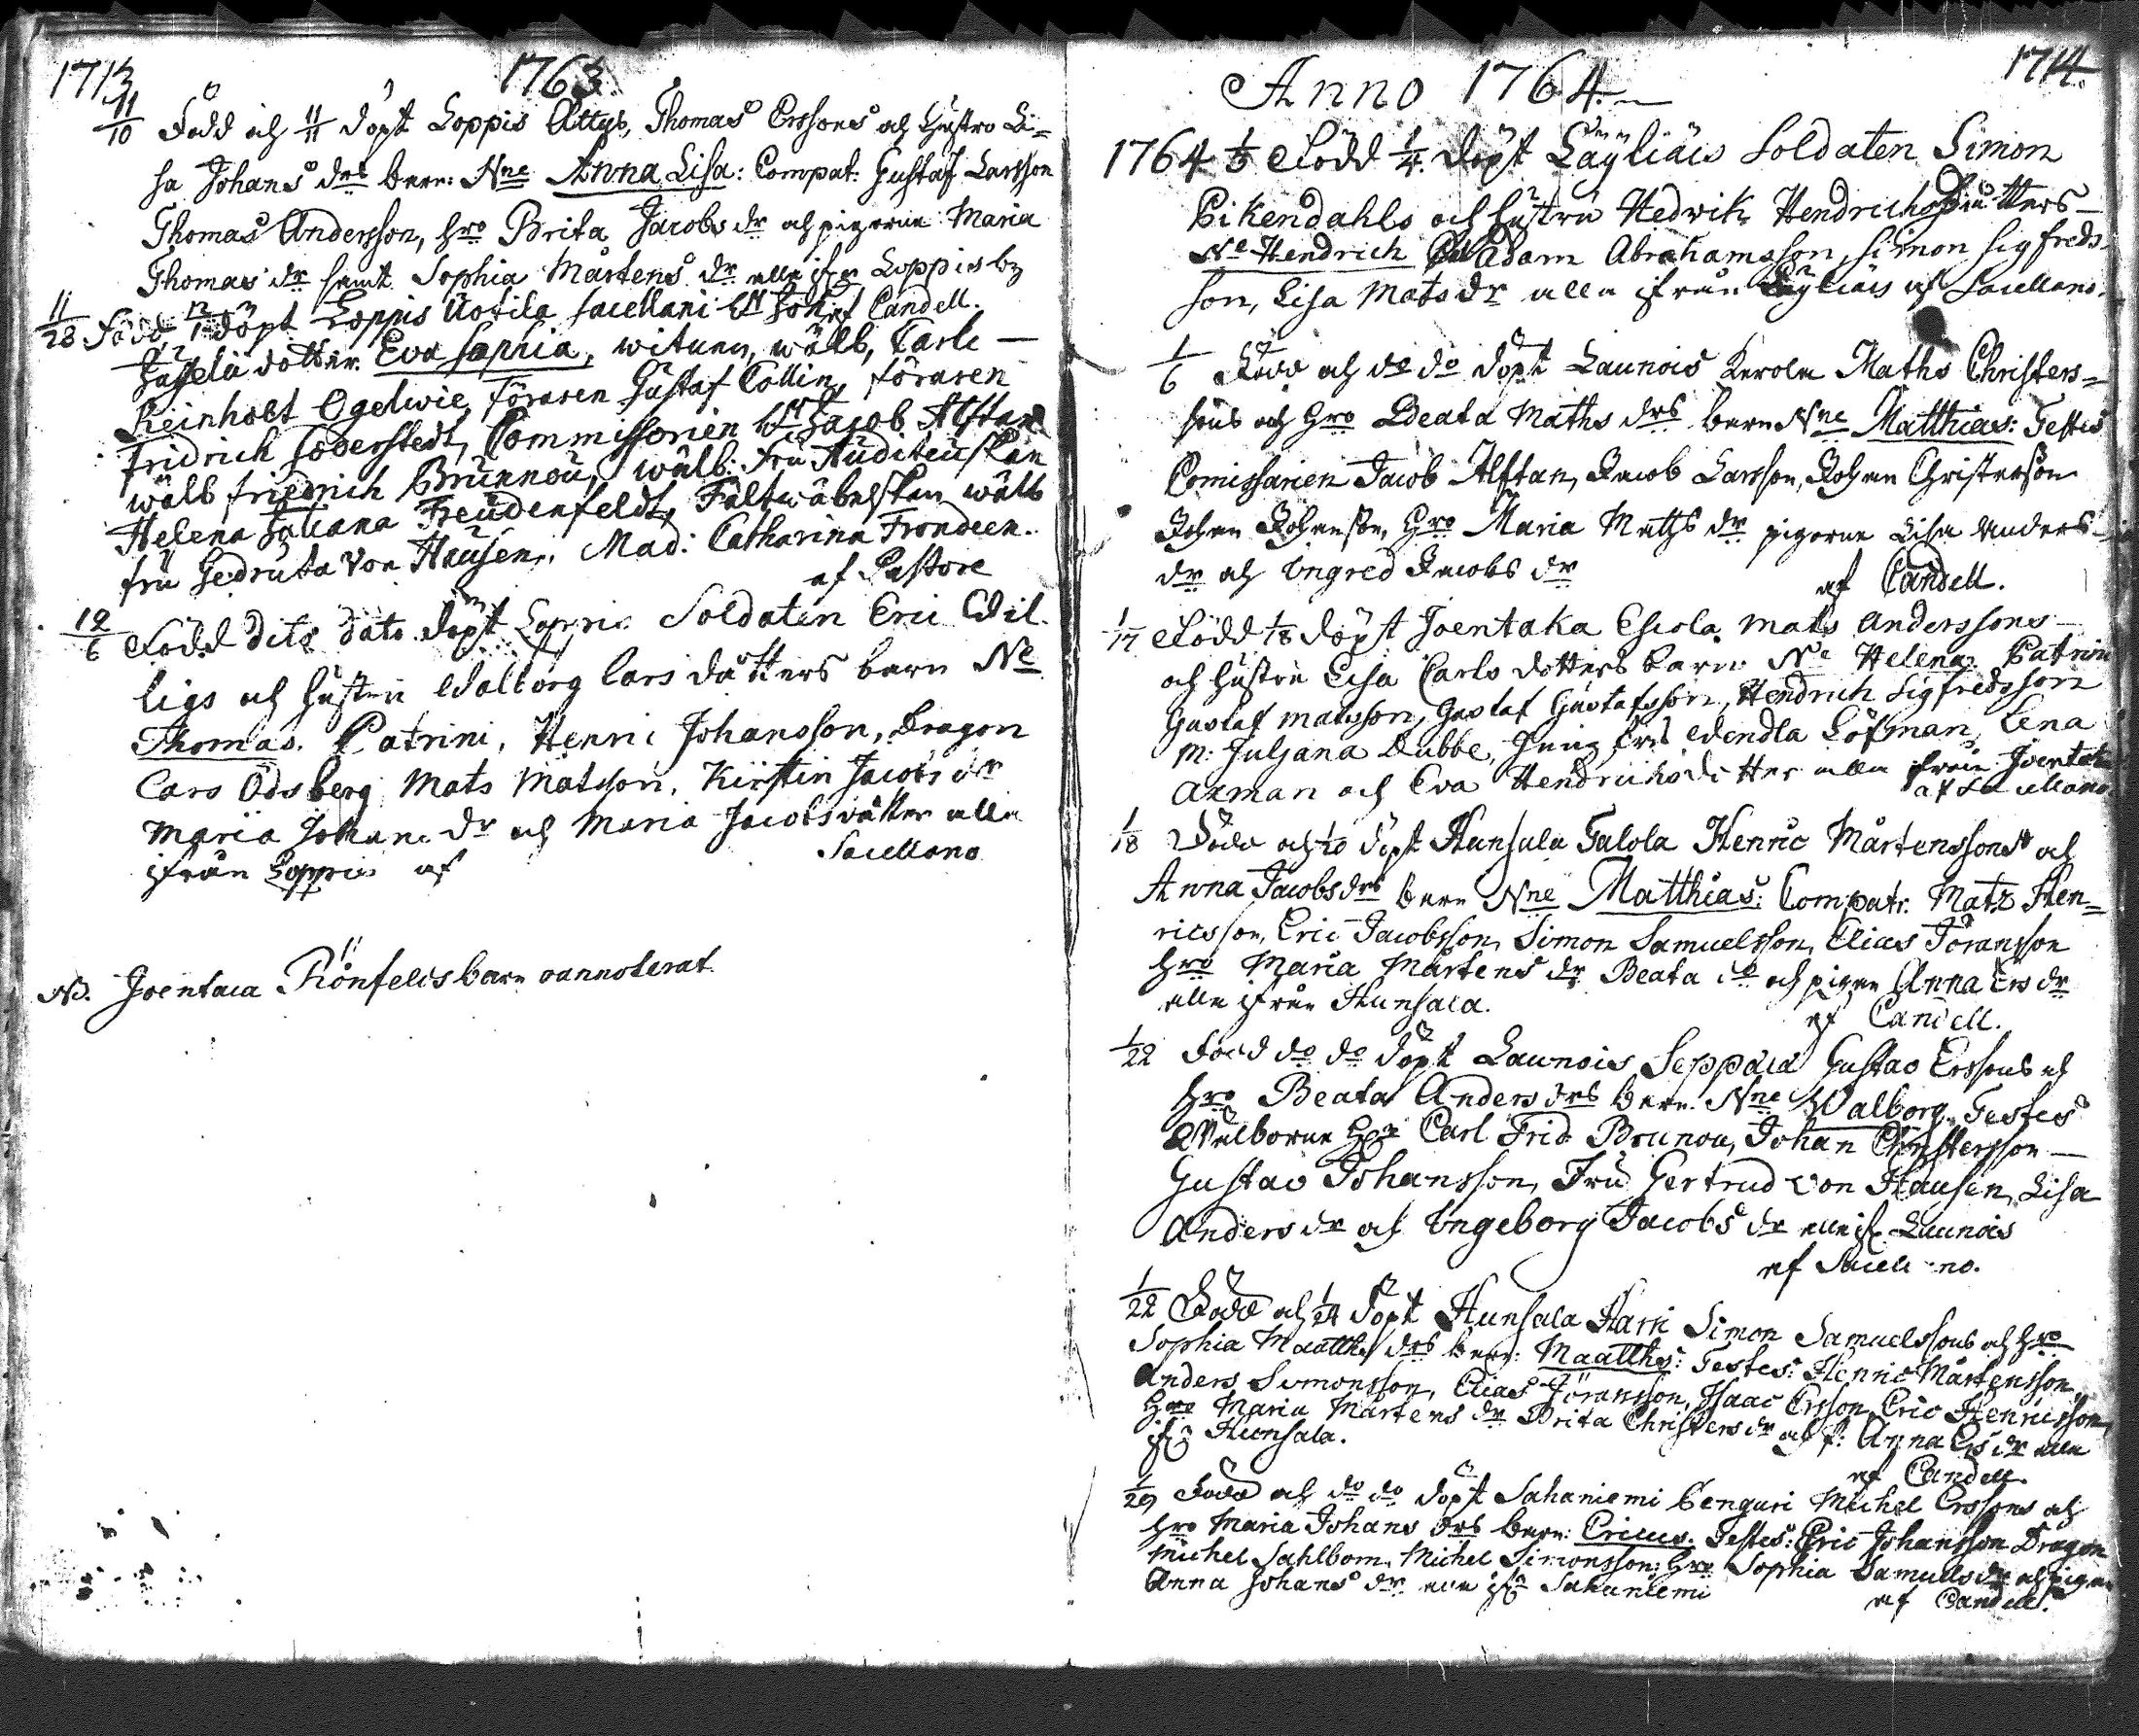 1713 1763
11/10 Född och 11/11 döpt Loppis Attys, Thomas Erssons och Hustro Li=
sa Johans drs barn: Nne Anna Lisa: Compat: Gustaf Larsson
Thomas Andersson, hro Brita Jacobs dr och pigorne Maria
Thomas dr samt Sophia Mårtens dr alle ifr Loppis by
11/28 Född, döpt Loppis Uotila Sacellani Candell.
dotter. Eva Sophia, witnen, wälb, Carle —
Reinholt Ogelwie, Föraren Gustaf Collin, föraren
Fridrich Söderstedt, Commissarien Hr Jacob Alftan
wälb Friedrich Brunnou, wälb. Fru Auditeurskan
Helena Juliana Freudenfeldt, Fältwäbelskan wälb
fru Gedruta Von Hausen, Mad: Catharina Frondeen.
af Pastore
12/6 Född dito dato döpt Loppis Soldaten Eric Wil
ligs och hustru Walborg Lars dåtters barn Ne
Thomas. Patrini, Henric Johansson, Dragon
Lars Odsberg Mats Matsson, Kirstin Jacobs dr
Maria Johans dr och Maria Jacobs dåtter alla
ifrån Loppis af Sacellano
NB. Joentaca Rönfelts barn oannoterat
1714
Anno 1764.
1764 1/3 Född 1/4 döpt Läyliäis Soldaten Simon
Pikendahls och hustru Hedwik Hendrichsdåtters —
Ne Hendrich Adam Abrahamsson, Simon Sigfreds-
son, Lisa Mats dr alla ifrån Läyliäis af Sacellano.
1/6 Född och do do döpt Launois Kerola Maths Christers=
sons och Hro Beata Maths drs barn Nne Matthias: Testes
Comissarien Jacob Alftan, Jacob Larsson, Johan Christerson
Johan Johanson, Hro Maria Maths dr pigorne Lisa Anders
dr och Ingred Jacobs dr af Candell.
1/17 Född 1/18 döpt Joentaka Eskola Mats Anderssons —
och hustru Lisa Carls dotters barn Ne Helena. Patrini
Gustaf Matsson, Gustaf Gustafsson, Hendrich Sigfredsson
M: Juliana Dubbe, Jungfru Wendla Löfman, Lena
Axman och Eva Hendrichsdotter alla ifrån Joentaka
af Sacellano
1/18 Född och 1/20 döpt Hunsala Talola Henric Mårtenssons och
Anna Jacobs drs barn Nne Matthias: Compatr. Matz Hen=
ricsson, Eric Jacobsson, Simon Samuelsson, Elias Jöransson
Hro Maria Mårtens dr Beata do och pigan Anna Ers dr
alla ifrån Hunsala. af Candell.
1/22 Född do do döpt Launois Seppälä Gustav Erssons och
Hro Beata Anders drs barn. Nne Walborg. Testes
Wälborne Hr Carl Frid Brunou, Johan Christersson —
Gustav Johansson, Fru Gertrud von Hausen, Lisa
Anders dr och Ingeborg Jacobs dr alle ifr Launois
af Sacellano.
1/22 Född och 1/24 döpt Hunsala Harri Simon Samuelssons och Hro
Sophia Maatths drs barn: Maatths: Testes: Henric Mårtensson,
Anders Simonsson, Elias Jöransson, Isaac Ersson, Eric Henricsson,
Hro Maria Mårtens dr Brita Christers dr och p: Anna Ers dr alla
ifr Hunsala. af Candell.
1/29 Född och do do döpt Sahaniemi Benguri Michel Erssons och
Hro Maria Johans drs barn: Ericus. Testes: Eric Johansson Dragon
Michel Sahlbom, Michel Simonsson: Hro Sophia Samuels dr och pigan
Anna Johans dr alla ifr Sahaniemi af Candell.